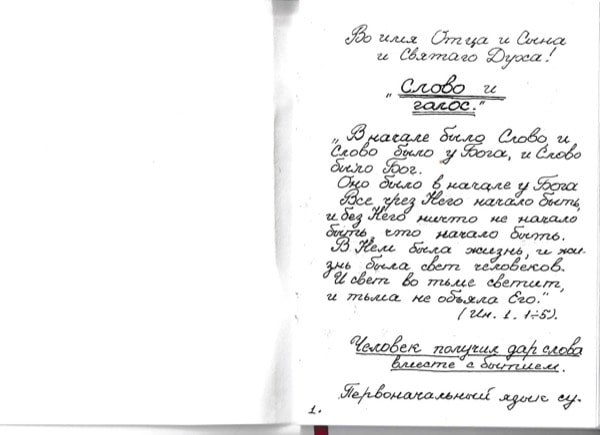 Во имя Отца и Сына
и Святаго Духа!
„Слово и
голос."
„В начале было Слово, и
Слово было у Бога, и Слово
было Бог.
Оно было в начале у Бога
Все чрез Него начало быть,
и без Него ничто не начало
быть, что начало быть.
В Нем была жизнь, и жи-
знь была свет человеков.
И свет во тьме светит,
и тьма не объяла Его."
(Ин. 1. 1÷5).
Человек получил дар слова
вместе с бытием.
Первоначальный язык су-
1.